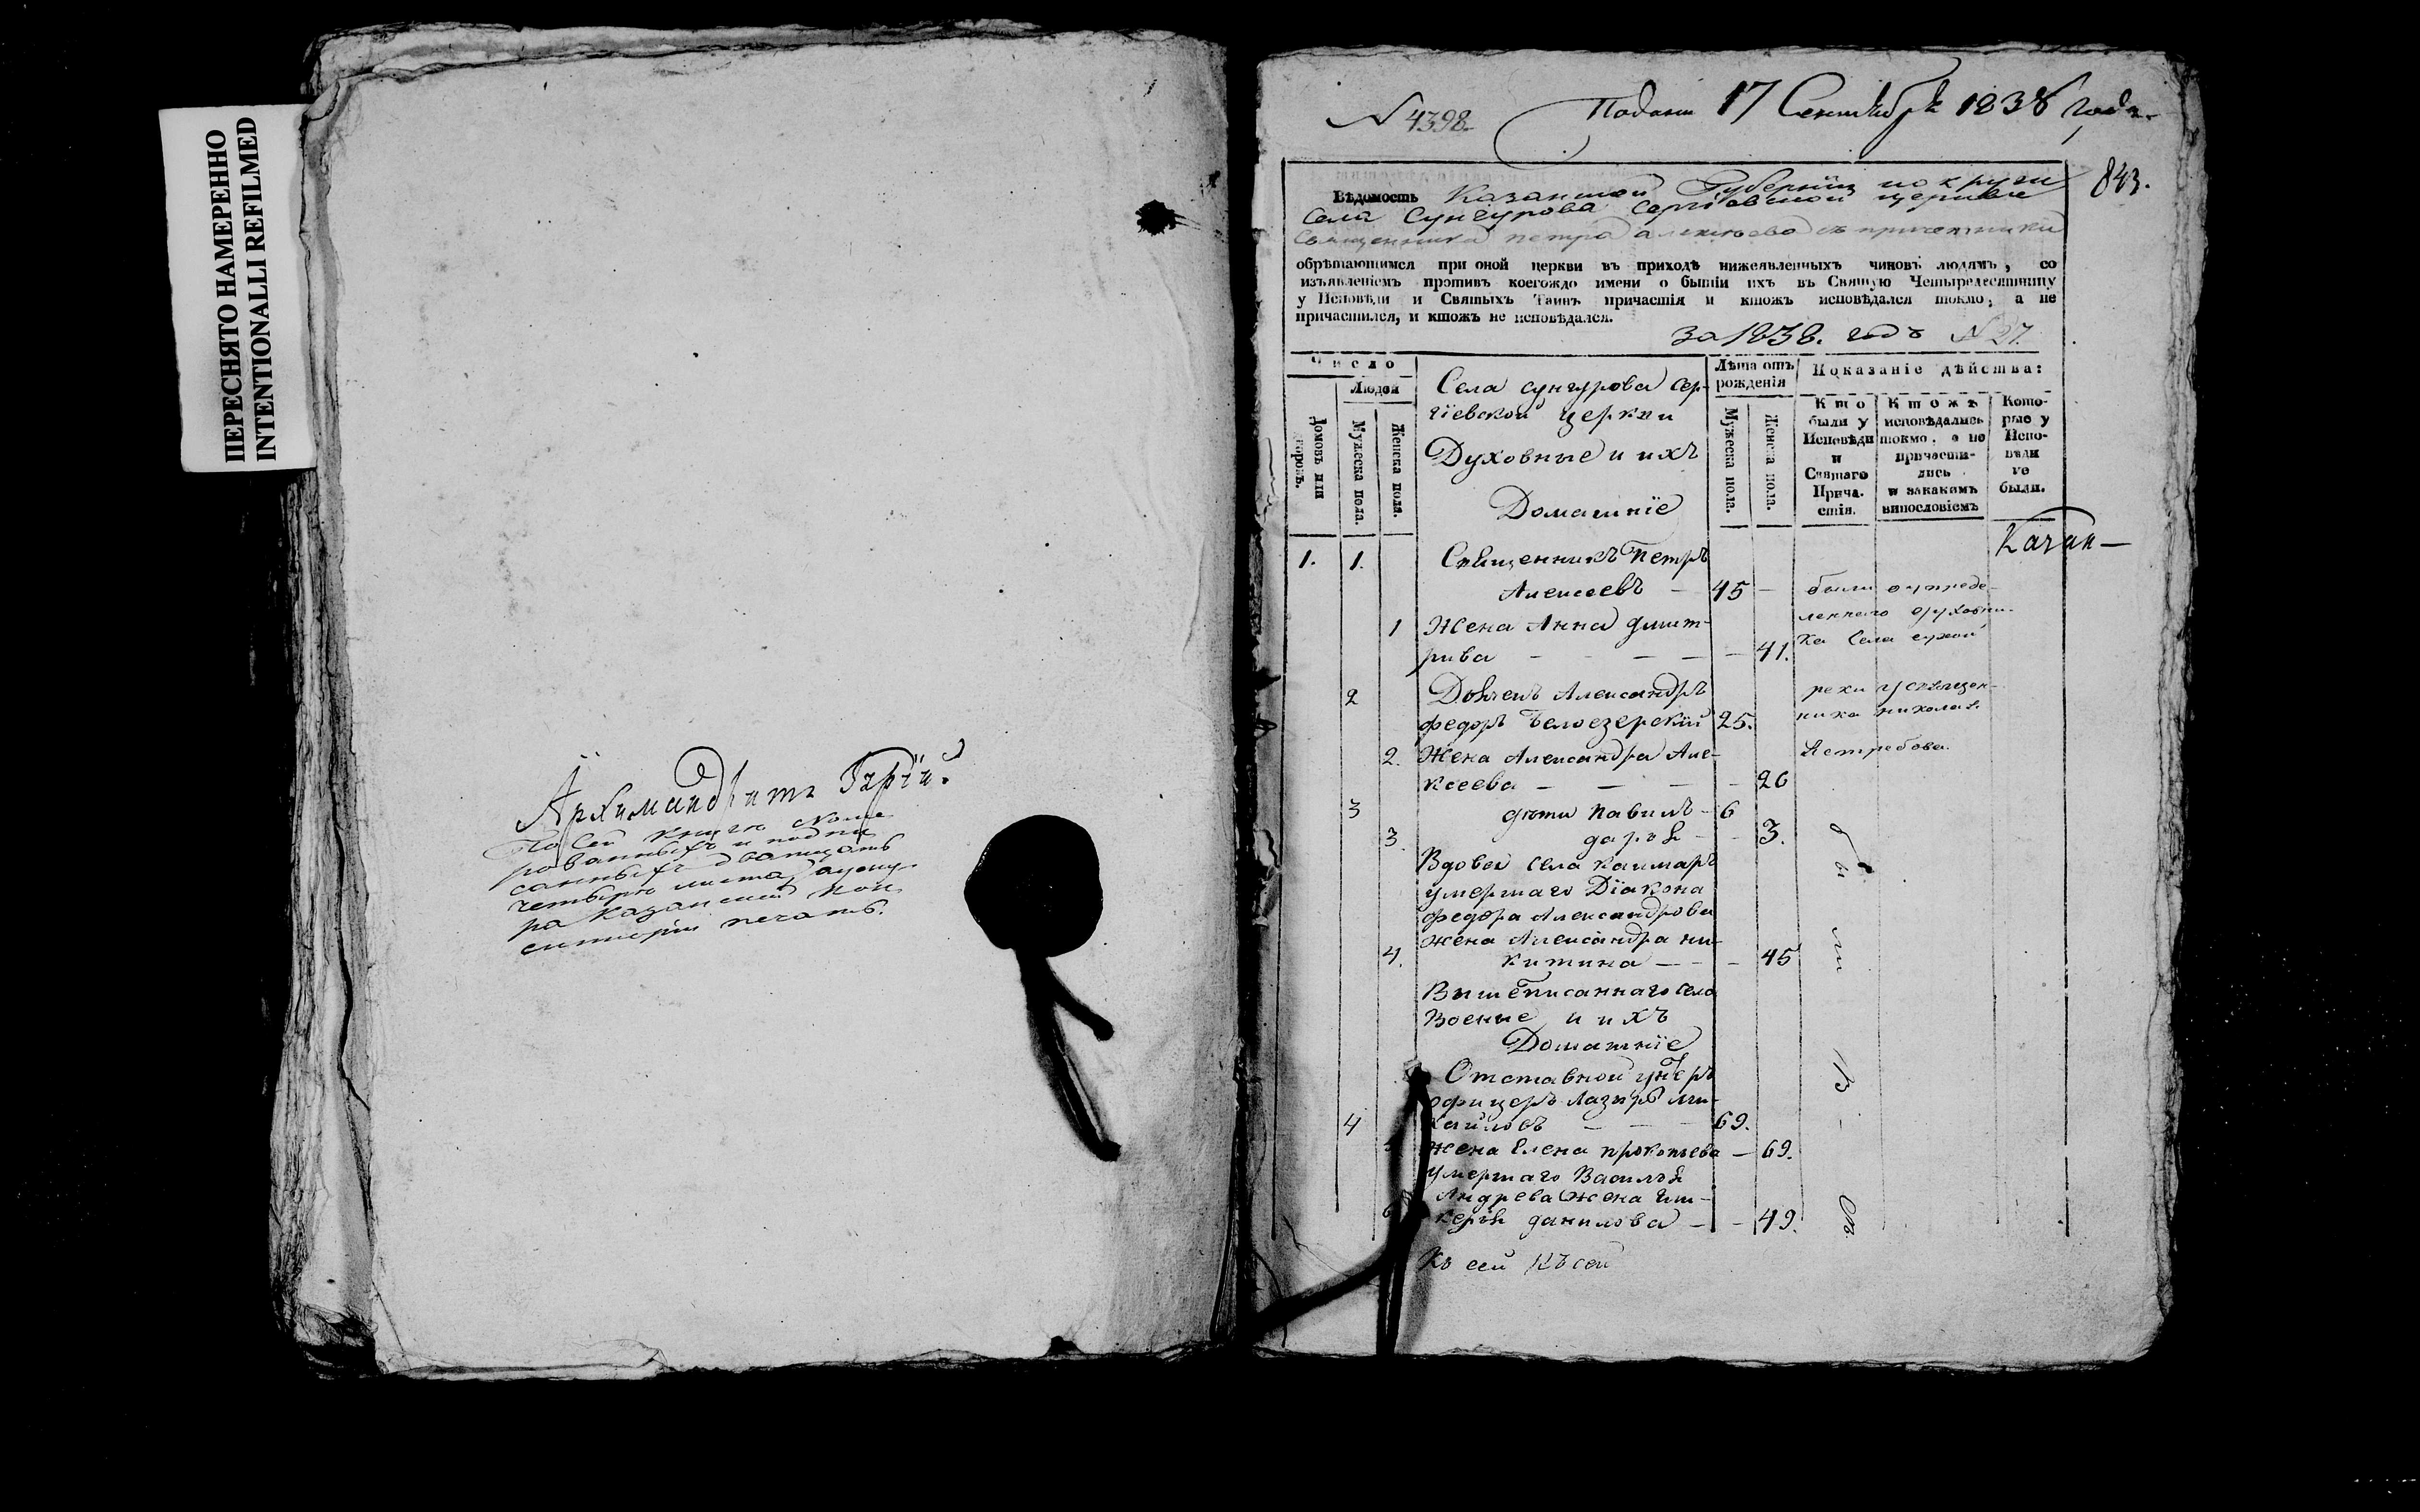 ПЕРЕСНЯТО НАМЕРЕННО
INTENTIONALLI REFILMED
Архимандритъ Гурій
По сей книгѣ номе
рованныхъ и подпи
санныхъ дватцать
четыре листа, а у сну
ра Казанской Кон
систоріи печать.
N 4398.
Подана 17 Сентября 1838 года.
843.
Вѣдомость Казанской Губерніи по округи
Села Сунгурова Сергіевской церкви
Священника Петра Алексѣева съ причетники
обрѣтающимся при оной церкви въ приходѣ нижеявленныхъ чиновъ людямъ, со
изъявленіемъ противъ коегождо имени о бытіи ихъ въ Святую Четыредесятницу
у Исповѣди и Святыхъ Таинъ причастія и ктожъ исповѣдался токмо, а не
причастился, и ктожъ не исповѣдался.
за 1838. годъ N 27.
Число
Людей
Домовъ или дворовъ.
Мужеска пола.
Женска пола.
Села сунгурова сер-
гіевской церкви
Духовные и ихъ
Домашніе
Лѣта отъ рожденія
Мужеска пола.
Женска пола.
Показаніе дѣйства:
Кто были у Исповѣди и Святаго Прича-стія.
Ктожъ исповѣдались токмо, а не причасти-лись и закакимъ винословіемъ
Кото-рые у Испо-вѣди не были.
1. 1. Священникъ Петръ
Алексеевъ — 45 —
были оупреде-
леннаго духовни-
ка села сухой
реки усвящен-
ника николая
Ястребова.
1 Жена Анна дмит-
рива — — — — 41.
2 Дьячекъ Александръ
федоръ Белоезерскій 25.
2. Жена Александра Але-
ксеева — — — — 26
3 дѣти павилъ - 6
3. дарья - - 3.
Вдова села каимаръ
умершаго Діакона
федора Александрова
4. жена Александра ни-
китина — - - 45
Вышеписаннаго села
Военые и ихъ
Домашніе
Отставной унтеръ
офицеръ лазарь ми-
4 хайловъ — — - 69.
5 жена Елена прокопьева — 69.
умершаго Василья
Андрева жена гли-
6 керья данилова — - 49.
бы
ли
Къ сей Къ сей